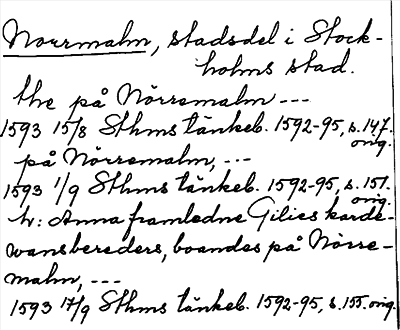 Norrmalm, stadsdel i Stock-
holms stad.
the på Nörremalm ---
1593 15/8 Sthms tänkeb. 1592-95, s. 147.
orig.
på Nörremalm, ---
1593 1/9 Sthms tänkeb. 1592-95, s. 151.
orig.
h: Anna framledne Gilies karde-
wansbereders, boandes på Nörre-
malm, ---
1593 17/9 Sthms tänkeb. 1592-95, s. 155. orig.